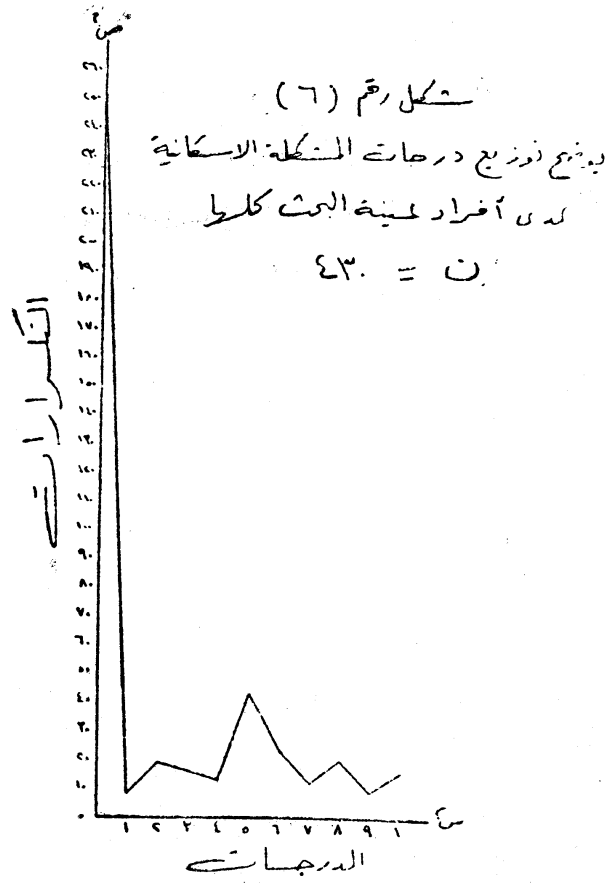 ص
شكل رقم (٦)
يوضح توزيع درجات المشكلة الاسكانية
لدى أفراد عينة البحث كلها
ن = ٤٣٠
التكرارات
٢٦٠
٢٥٠
٢٤٠
٢٣٠
٢٢٠
٢١٠
٢٠٠
١٩٠
١٨٠
١٧٠
١٦٠
١٥٠
١٤٠
١٣٠
١٢٠
١١٠
١٠٠
٩٠
٨٠
٧٠
٦٠
٥٠
٤٠
٣٠
٢٠
١٠
٠
١ ٢ ٣ ٤ ٥ ٦ ٧ ٨ ٩ ١
س
الدرجات